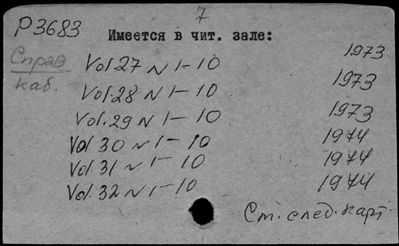 7
P3683
Имеется в чит. зале:
Справ
каб.
Vol 27 N 1-10 1973
Vol 28 N 1-10 1973
Vol. 29 N 1-10 1973
Vol 30 N 1-10 1974
Vol 31 N 1-10 1974
Vol. 32 N 1-10 1974
См. след. карт.